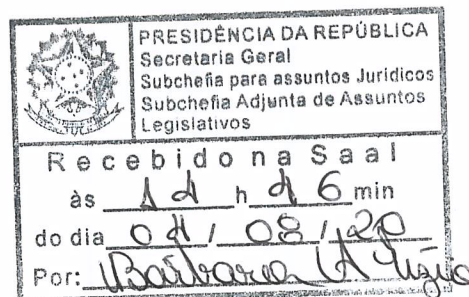 PRESIDÊNCIA DA REPÚBLICA
Secretaria Geral
Subchefia para assuntos Jurídicos
Subchefia Adjunta de Assuntos
Legislativos
Recebido na Saal
às h min
do dia / 08 / 20
Por: Barbara